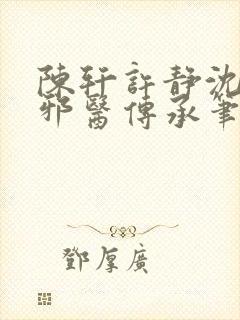 陳軒許靜沈
邪醫傳承筆
鄧厚廣